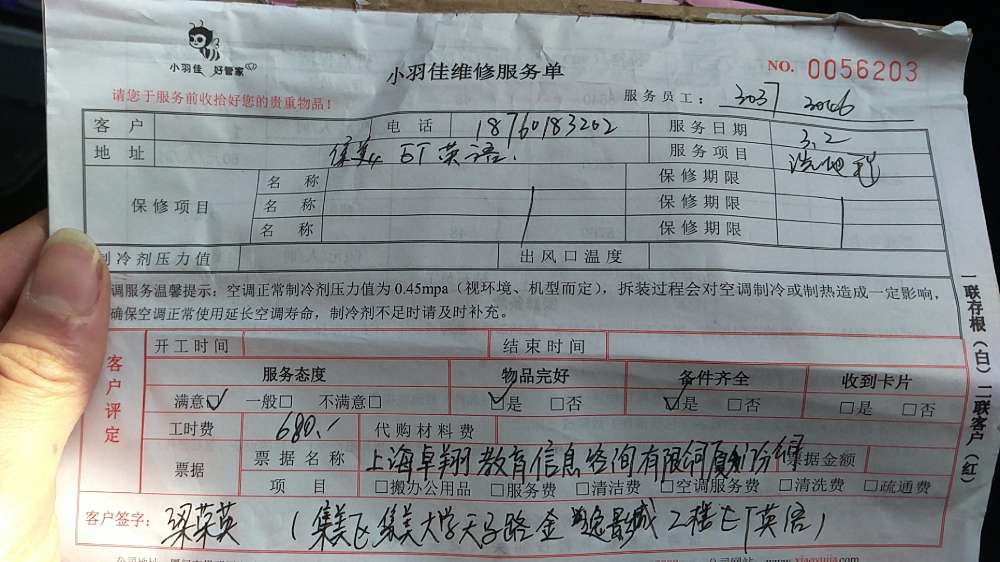 小羽佳 好管家
小羽佳维修服务单
NO. 0056203
请您于服务前收拾好您的贵重物品！
服务员工： 3037 3006
客 户 电 话 18760183202 服务日期 3.2
地 址 集美 ET英语. 服务项目 洗地毯
保修项目 名 称 保修期限
名 称 保修期限
名 称 保修期限
制冷剂压力值 出风口温度
调服务温馨提示：空调正常制冷剂压力值为0.45mpa（视环境、机型而定），拆装过程会对空调制冷或制热造成一定影响，
确保空调正常使用延长空调寿命，制冷剂不足时请及时补充。
客户评定
开工时间 结束时间
服务态度 物品完好 备件齐全 收到卡片
满意☑ 一般□ 不满意□ ☑是 □否 ☑是 □否 □是 □否
工时费 680.- 代购材料费
票据 票据名称 上海卓翔教育信息咨询有限公司厦门分 票据金额
项 目 □搬办公用品 □服务费 □清洁费 □空调服务费 □清洗费 □疏通费
客户签字： 梁荣英 （集美区集美大学天马路金 影城2楼ET英语）
一联存根（白）二联客户（红）
公司网站：www.xiaoyujia.com